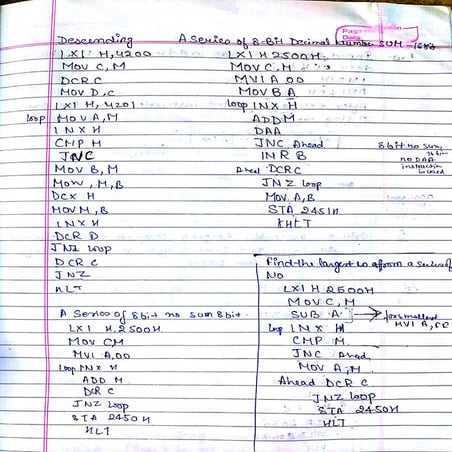 Descending
LXI H, 4200
MOV C, M
DCR C
MOV D, C
LXI H, 4201
loop MOV A, M
INX H
CMP M
JNC
MOV B, M
MOV M, B
DCX H
MOV M, B
INX H
DCR D
JNZ loop
DCR C
JNZ
HLT
A Series of 8bit no sum 8bit.
LXI H, 2500H
MOV C M
MVI A, 00
loop INX H
ADD M
DCR C
JNZ loop
STA 2450H
HLT
A Series of 8-Bit Decimal Number SUM -16B
LXI H 2500H
MOV C, M
MVI A 00
MOV B A
loop INX H
ADD M
DAA
JNC Ahead
INR B
Ahead DCR C
JNZ loop
MOV A, B
STA 2451H
HLT
8 bit no sum,
no DAA
Find the largest no from a series of
No
LXI H 2500H
MOV C, M
SUB A → for smallest
MVI A, FF
loop INX H
CMP M
JNC Ahead,
MOV A, M
Ahead DCR C
JNZ loop
STA 2450H
HLT